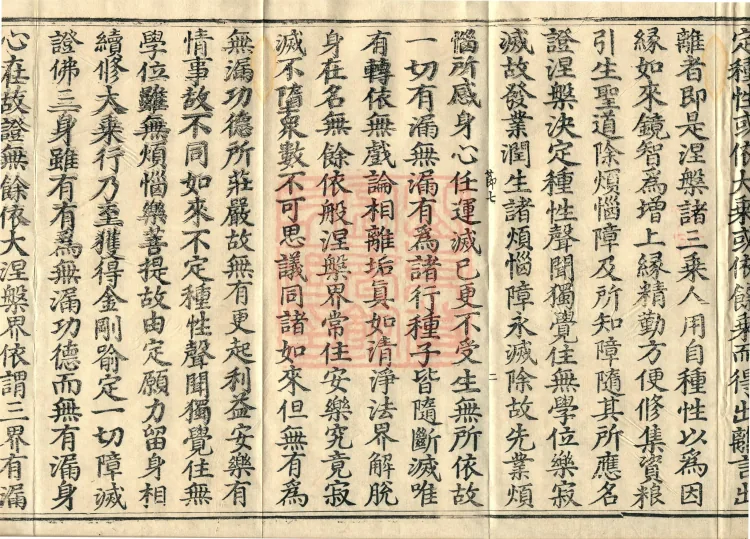 定種性或依大乘或依餘乘而得出離言出
離者即是涅槃諸三乘人用自種性以爲因
緣如來鏡智爲增上緣精勤方便修集資粮
引生聖道除煩惱障及所知障隨其所應名
證涅槃決定種性聲聞獨覺住無學位樂寂
滅故發業潤生諸煩惱障永滅除故先業煩
節七
二
惱所感身心任運滅已更不受生無所依故
一切有漏無漏有爲諸行種子皆隨斷滅唯
有轉依無戲論相離垢真如清淨法界解脫
身在名無餘依般涅槃界常住安樂究竟寂
滅不墮衆數不可思議同諸如來但無有爲
無漏功德所莊嚴故無有更起利益安樂有
情事故不同如來不定種性聲聞獨覺住無
學位雖無煩惱樂菩提故由定願力留身相
續修大乘行乃至獲得金剛喻定一切障滅
證佛三身雖有有爲無漏功德而無有漏身
心在故證無餘依大涅槃界依謂三界有漏